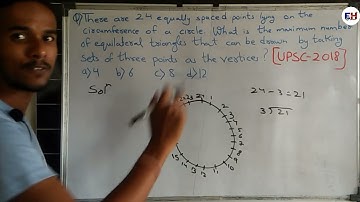 Q) There are 24 equally spaced points lying on the
circumference of a circle. What is the maximum number
of equilateral triangles that can be drawn by taking
sets of three points as the vertices? [UPSC-2018]
a) 4 b) 6 c) 8 d) 12
Sol
24 - 3 = 21
3 21
23 24 1
2
3
4
5
6
7
8
9
10
11
12
13
14
15